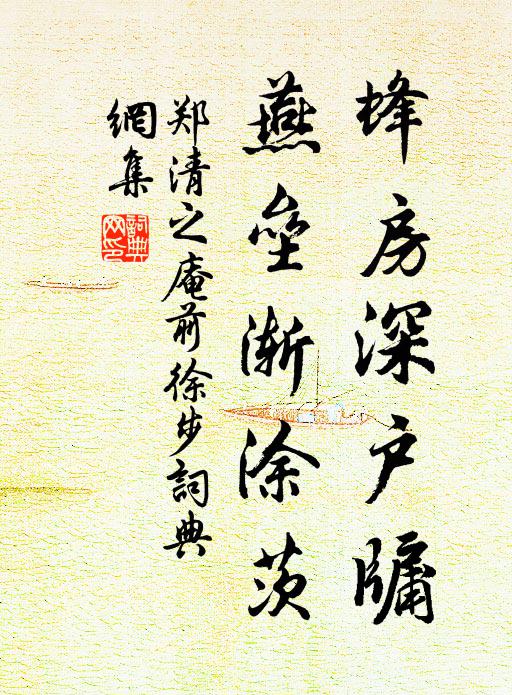 蜂房深户牖
燕垒渐涂茨
郑清之庵前徐步詞典
網集
詞典
网印